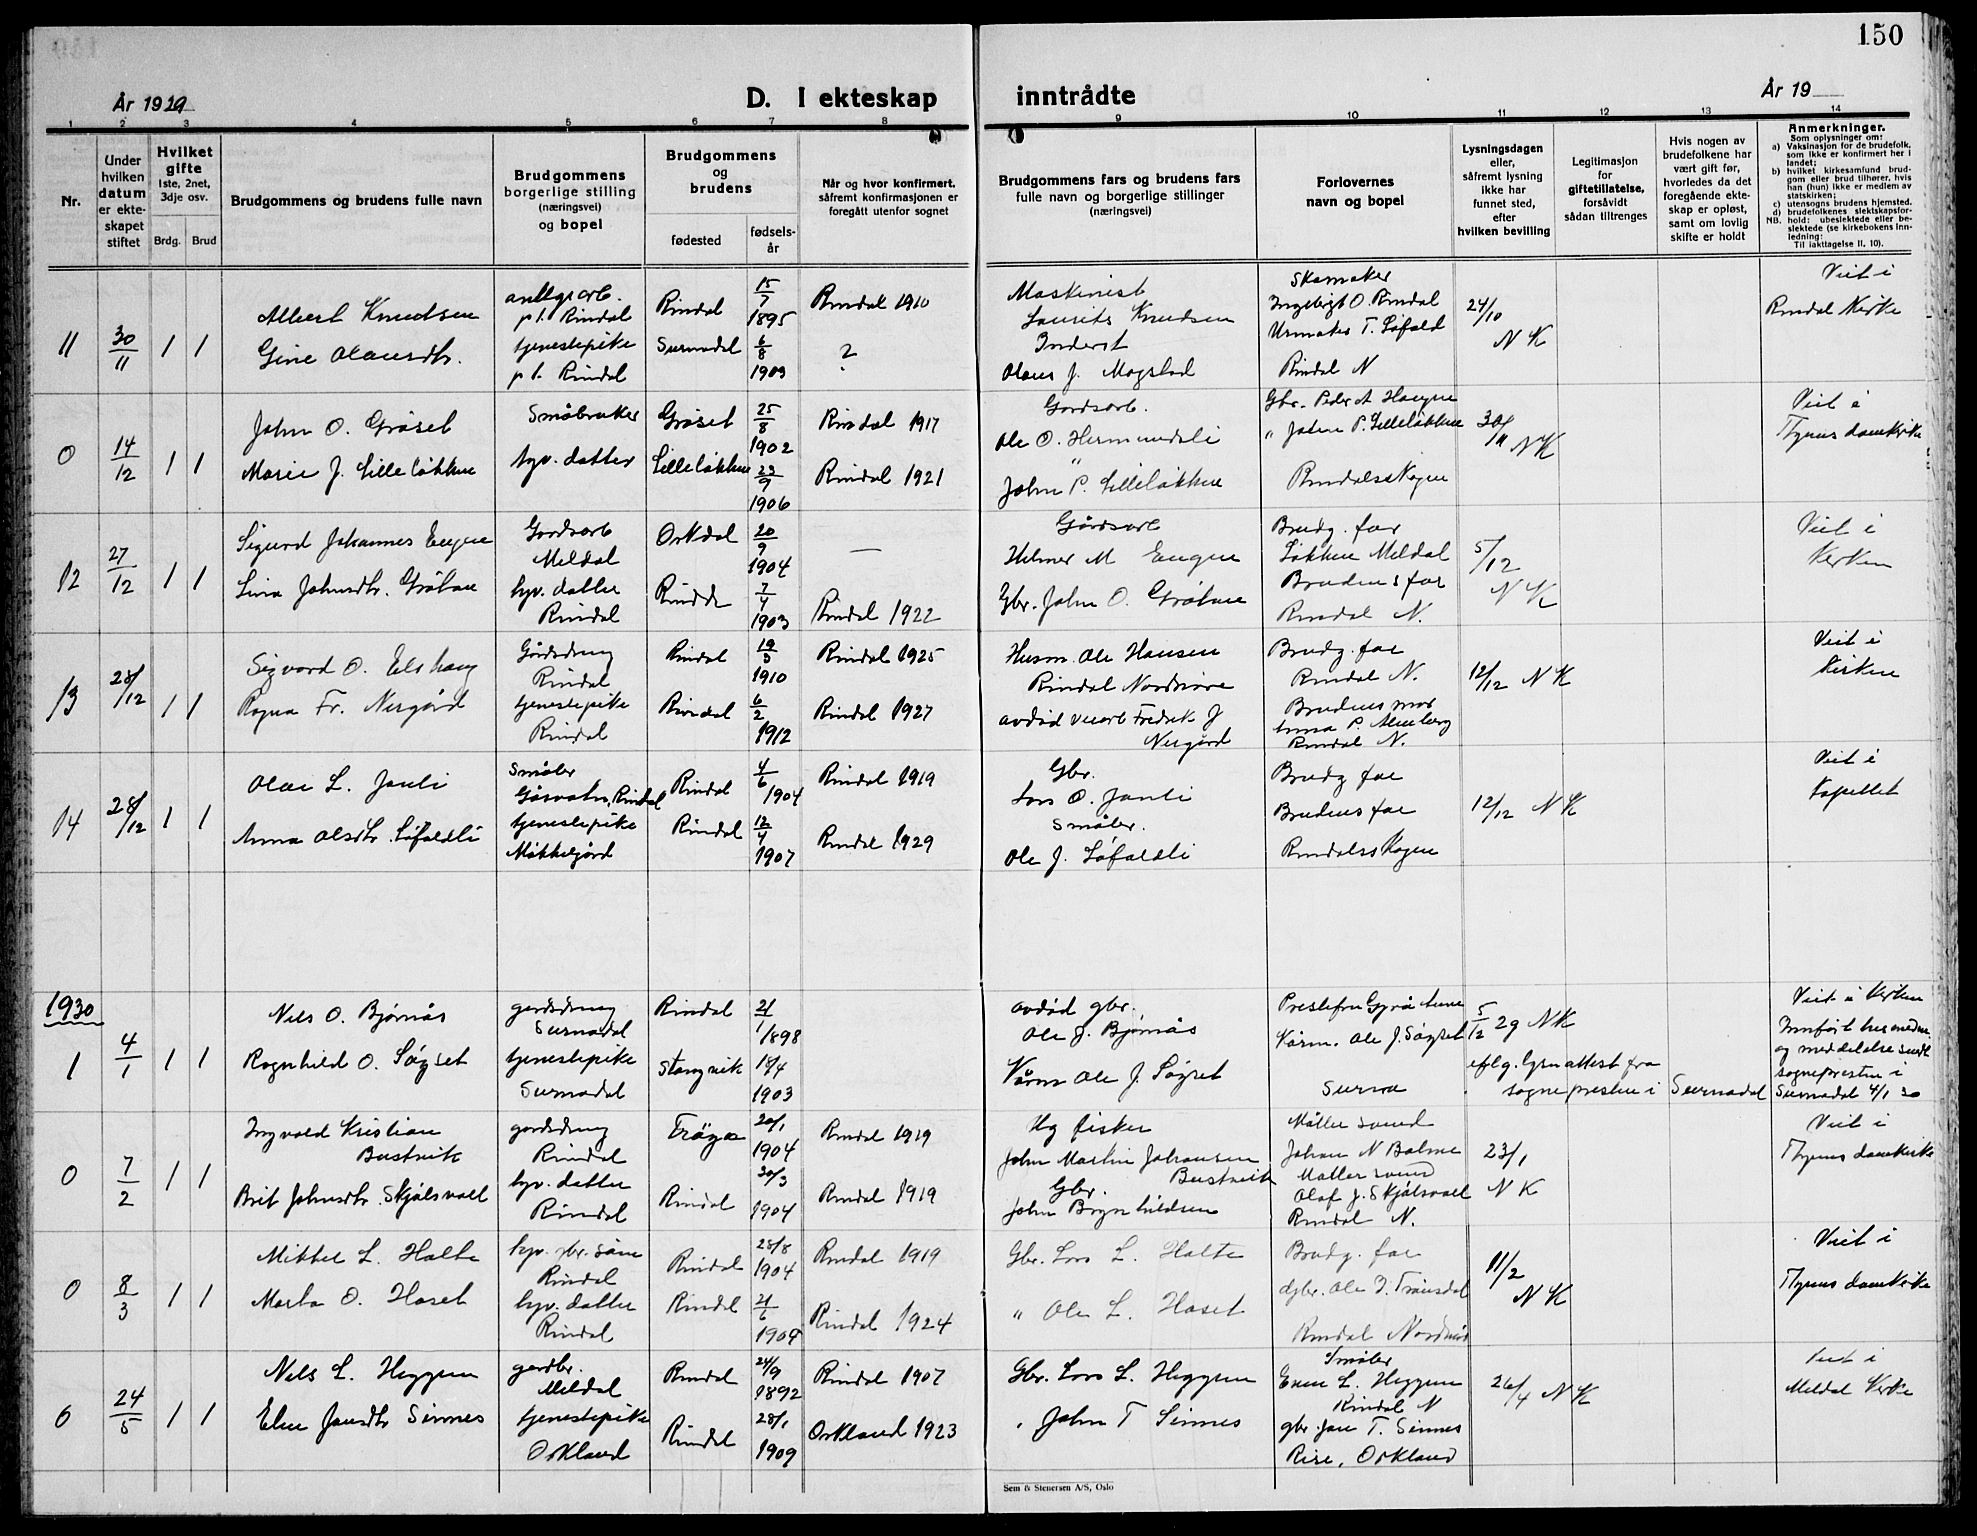 150
År 1929
D. I ekteskap inntrådte
År 19
1 2 3 4 5 6 7 8 9 10 11 12 13 14
Nr.
Under hvilken datum er ekteskapet stiftet
Hvilket gifte
1ste, 2net, 3dje osv.
Brdg. Brud
Brudgommens og brudens fulle navn
Brudgommens borgerlige stilling (næringsvei) og bopel
Brudgommens og brudens
fødested
fødselsår
Når og hvor konfirmert, såfremt konfirmasjonen er foregått utenfor sognet
Brudgommens fars og brudens fars fulle navn og borgerlige stillinger (næringsvei)
Forlovernes navn og bopel
Lysningsdagen eller, såfremt lysning ikke har funnet sted, efter hvilken bevilling
Legitimasjon for giftetillatelse, forsåvidt sådan tiltrenges
Hvis nogen av brudefolkene har vært gift før, hvorledes da det foregående ekteskap er opløst, samt om lovlig skifte er holdt
Anmerkninger.
Som oplysninger om:
a) Vaksinasjon for de brudefolk, som ikke er konfirmert her i landet;
b) hvilket kirkesamfund brudgom eller brud tilhører, hvis han (hun) ikke er medlem av statskirken;
c) utensogns brudens hjemsted.
d) brudefolkenes slektskapsforhold: ubeslektede eller beslektede (se kirkebokens Innledning:
NB. Til iakttagelse II, 10).
11 30/11 1 1
Albert Knudsen
Gine Olausdtr.
anlegsarb.
p.t. Rindal
tjenestepike
p.t. Rindal
Rindal 15/7 1895 Rindal 1910
Surnadal 6/8 1909 ?
Maskinist
Laurits Knudsen
Inderst
Olaus J. Mogstad
Skomaker
Ingebrigt O. Rindal
Urmaker T. Løfald
Rindal N
24/10
N K
Viet i
Rindal Kirke
0 14/12 1 1
John O. Grøset
Marie J. Lilleløkken
Småbruker
hjv. datter
Grøset 25/8 1902 Rindal 1917
Lilleløkken 23/9 1906 Rindal 1921
Gårdsarb.
Ole O. Hermundsli
"
John P. Lilleløkken
Gbr. Peder A Haugen
" John P. Lilleløkken
Rindalsskogen
30/11 N K
Viet i
12 27/12 1 1
Sigurd Johannes Eugen
Lina Johnsdtr. Gråhau
Gårdsarb
Meldal
hjv. datter
Rindal
Orkdal 20/9 1904 —
Rindal 7/4 1903 Rindal 1922
Gårdsarb
Helmer M Eugen
Gbr. John O. Gråhau
Brudg. far
Løkken Meldal
Brudens far
Rindal N.
5/12
N K
Viet i
Kirken
13 28/12 1 1
Sigvard O. Elshaug
Ragna Fr. Nergård
Gårdsdreng
Rindal
tjenestepike
Rindal
Rindal 19/3 1910 Rindal 1925
Rindal 6/2 1912 Rindal 1927
Husm. Ole Hansen
Rindal Nordmøre
avdød veiarb Fredrik J
Nergård
Brudg. far
Rindal N.
Brudens mor
Anna P. Almberg
Rindal N.
12/12 N K
Viet i
Kirken
14 28/12 1 1
Olai L. Jauli
Anna Olsdtr. Løfaldli
Småbr
Gåsvatn, Rindal
tjenestepike
Mikkelgjerd
Rindal 4/6 1904 Rindal 1919
Rindal 12/4 1907 Rindal 1929
Gbr.
Lars O. Jauli
Småbr.
Ole J. Løfaldli
Brudg far
Brudens far
Rindalsskogen
12/12 N K
Viet i
Kapellet
1930
1 4/1 1 1
Nils O. Bjørnås
Ragnhild O. Søyset
gårdsdreng
Surnadal
tjenestepike
Surnadal
Rindal 21/1 1898
Stangvik 18/4 1903
avdød gbr.
Ole J. Bjørnås
Kårm Ole J. Søyset
Prestefru Gyrå Aune
Kårm. Ole J. Søyset
Surna
5/12 29 N K
eflg. lysn attest fra
sognepresten i Surnadal
Viet i Kirken
Innført her
og meddelelse sendt
sognepresten i
Surnadal 4/1 30
0 7/2 1 1
Ingvald Kristian
Bustvik
Brit Johnsdtr. Skjølsvoll
gårdsdreng
Rindal
hjv. datter
Rindal
Frøya 20/1 1904 Rindal 1919
Rindal 30/3 1904 Rindal 1919
Og fisker
John Martin Johansen
Bustvik
Gbr.
John Brynhildsen
Møller svend
Johan N Bolme
Møller svend
Olaf J. Skjølsvoll
Rindal N.
23/1
N K
Viet i
0 8/3 1 1
Mikkel L. Holte
Marta O. Haset
hjv. gbr. søn
Rindal
hjv. datter
Rindal
Rindal 25/8 1904 Rindal 1919
Rindal 21/6 1909 Rindal 1924
Gbr. Lars L. Holte
" Ole L. Haset
Brudg. far
Rindal Nordmør
11/2
N K
Viet i
6 24/5 1 1
Nils L. Heggem
Elen Jonsdtr Sinnes
gardbr.
Meldal
tjenestepike
Orkland
Rindal 24/9 1892 Rindal 1907
Rindal 28/1 1909 Orkland 1923
Gbr. Lars L. Heggem
" John T Sinnes
Småbr
Even L. Heggem
Rindal N
gbr. Jon T. Sinnes
Rise, Orkland
26/4 N K
Viet i
Meldal Kirke
Sem & Stenersen A/S, Oslo